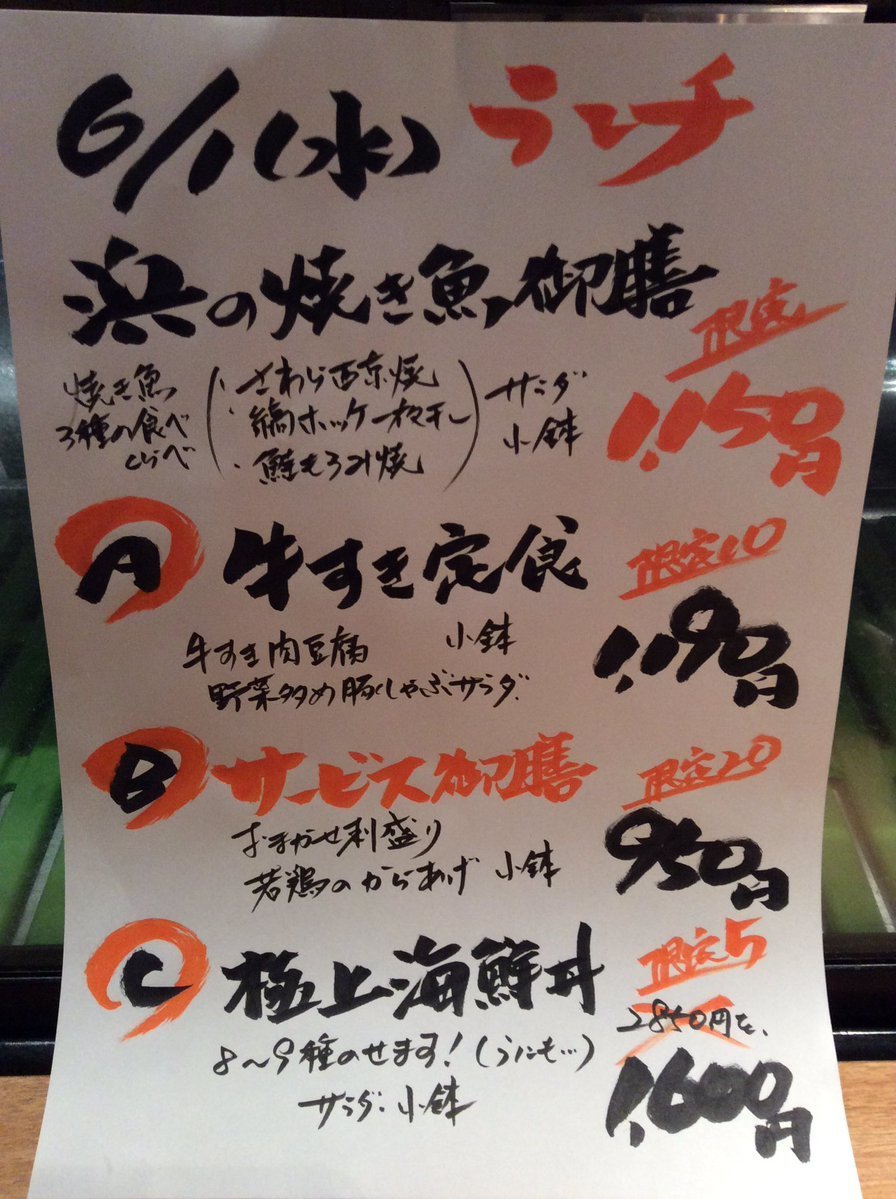 6/1(水) ランチ
浜の焼き魚御膳
限定
1,150円
焼き魚
3種の食べ
くらべ
(・さわら西京焼
・縞ホッケ一夜干し
・鮭もろみ焼)
サラダ
小鉢
A 牛すき定食
限定10
1,190円
牛すき肉豆腐 小鉢
野菜多め豚しゃぶサラダ
B サービス御膳
限定20
950円
おまかせ刺盛り
若鶏のからあげ 小鉢
C 極上海鮮丼
限定5
2850円を、
1,600円
8〜9種のせます!(うにも…)
サラダ・小鉢